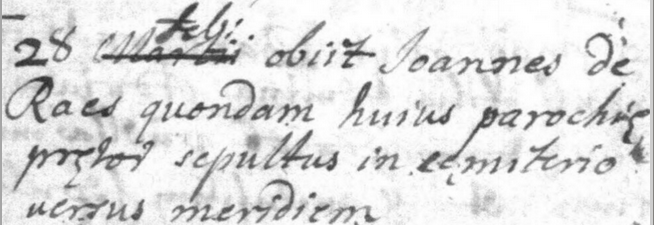 febr:
28 Martii obiit Joannes de
Raes quondam huius parochię
prętor sepultus in cęmiterio
versus meridiem